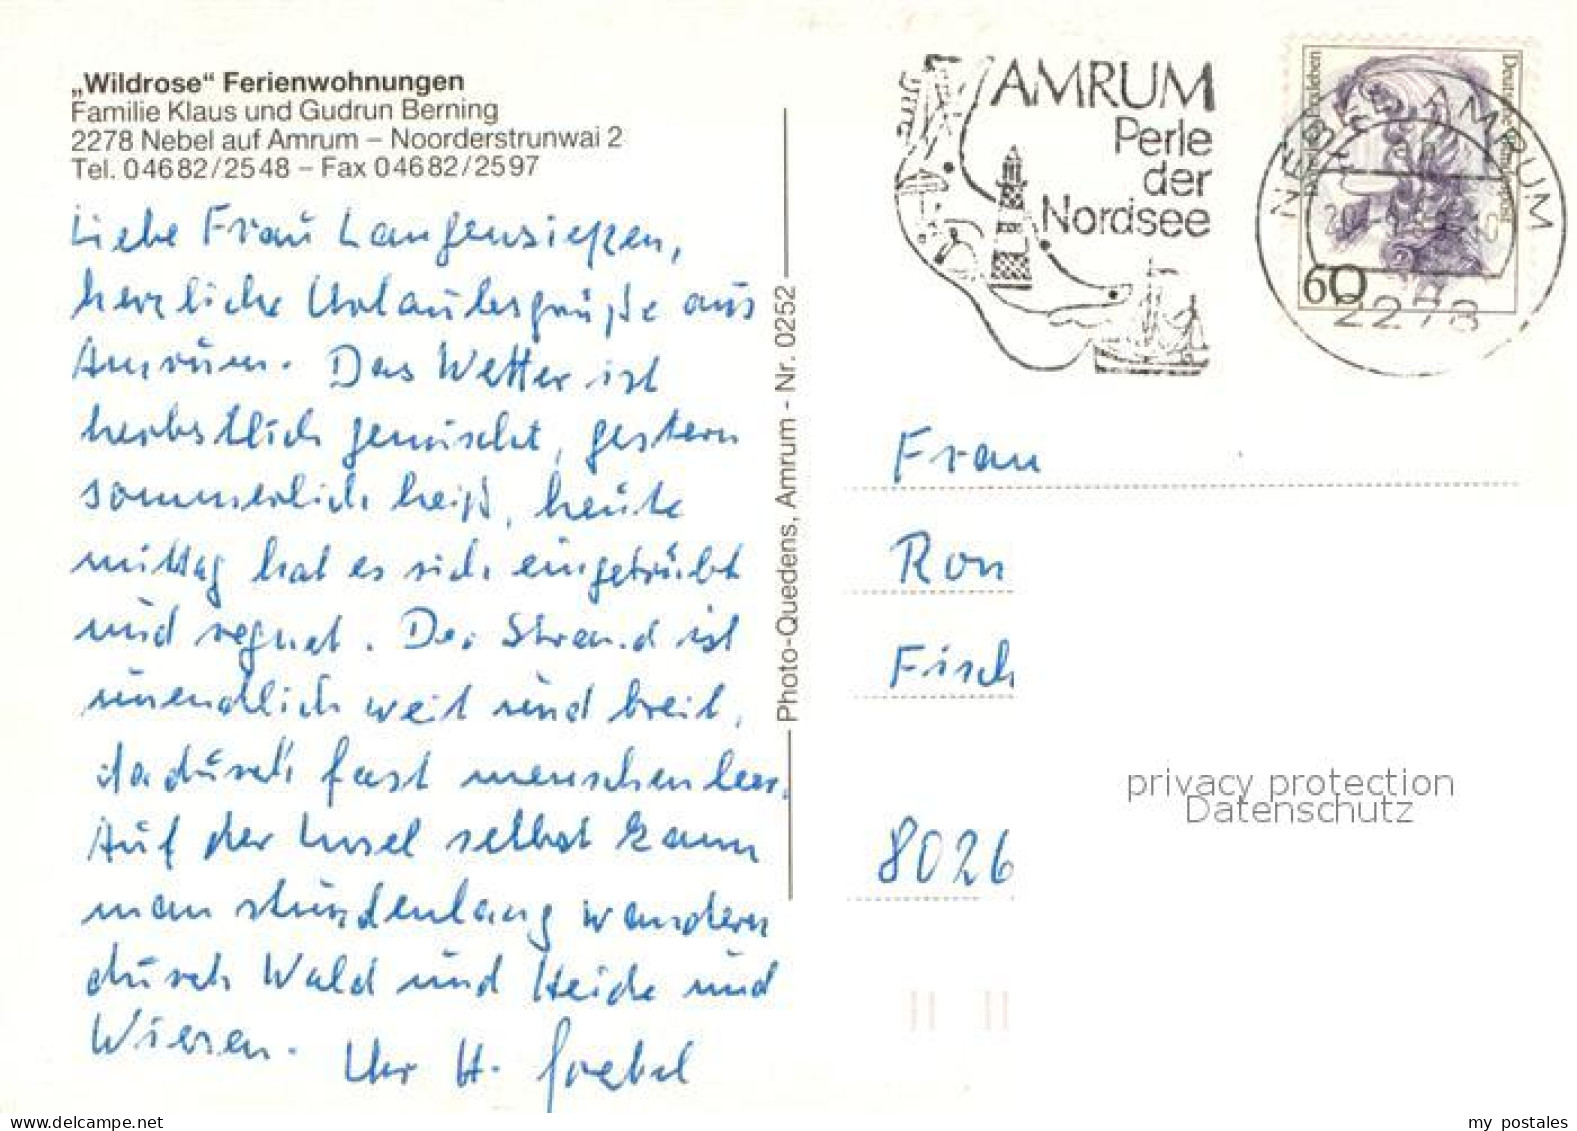 „Wildrose“ Ferienwohnungen
Familie Klaus und Gudrun Berning
2278 Nebel auf Amrum – Noorderstrunwai 2
Tel. 04682/2548 – Fax 04682/2597
Liebe Frau
herzliche Urlaubsgrüße aus
Amrum. Das Wetter ist
herbstlich gemischt, gestern
sommerlich heiß, heute
mittag hat es sich eingetrübt
und regnet. Der Strand ist
unendlich weit und breit,
dadurch fast menschenleer.
Auf der Insel selbst kann
man stundenlang wandern
durch Wald und Heide und
Wiesen. Ihr H. Goebel
Photo-Quedens, Amrum - Nr. 0252
AMRUM
Perle
der
Nordsee
Deutsche Bundespost
60
NEBEL AMRUM
2278
Frau
Ron
Fisch
8026
privacy protection
Datenschutz
delcampe.net
my postales